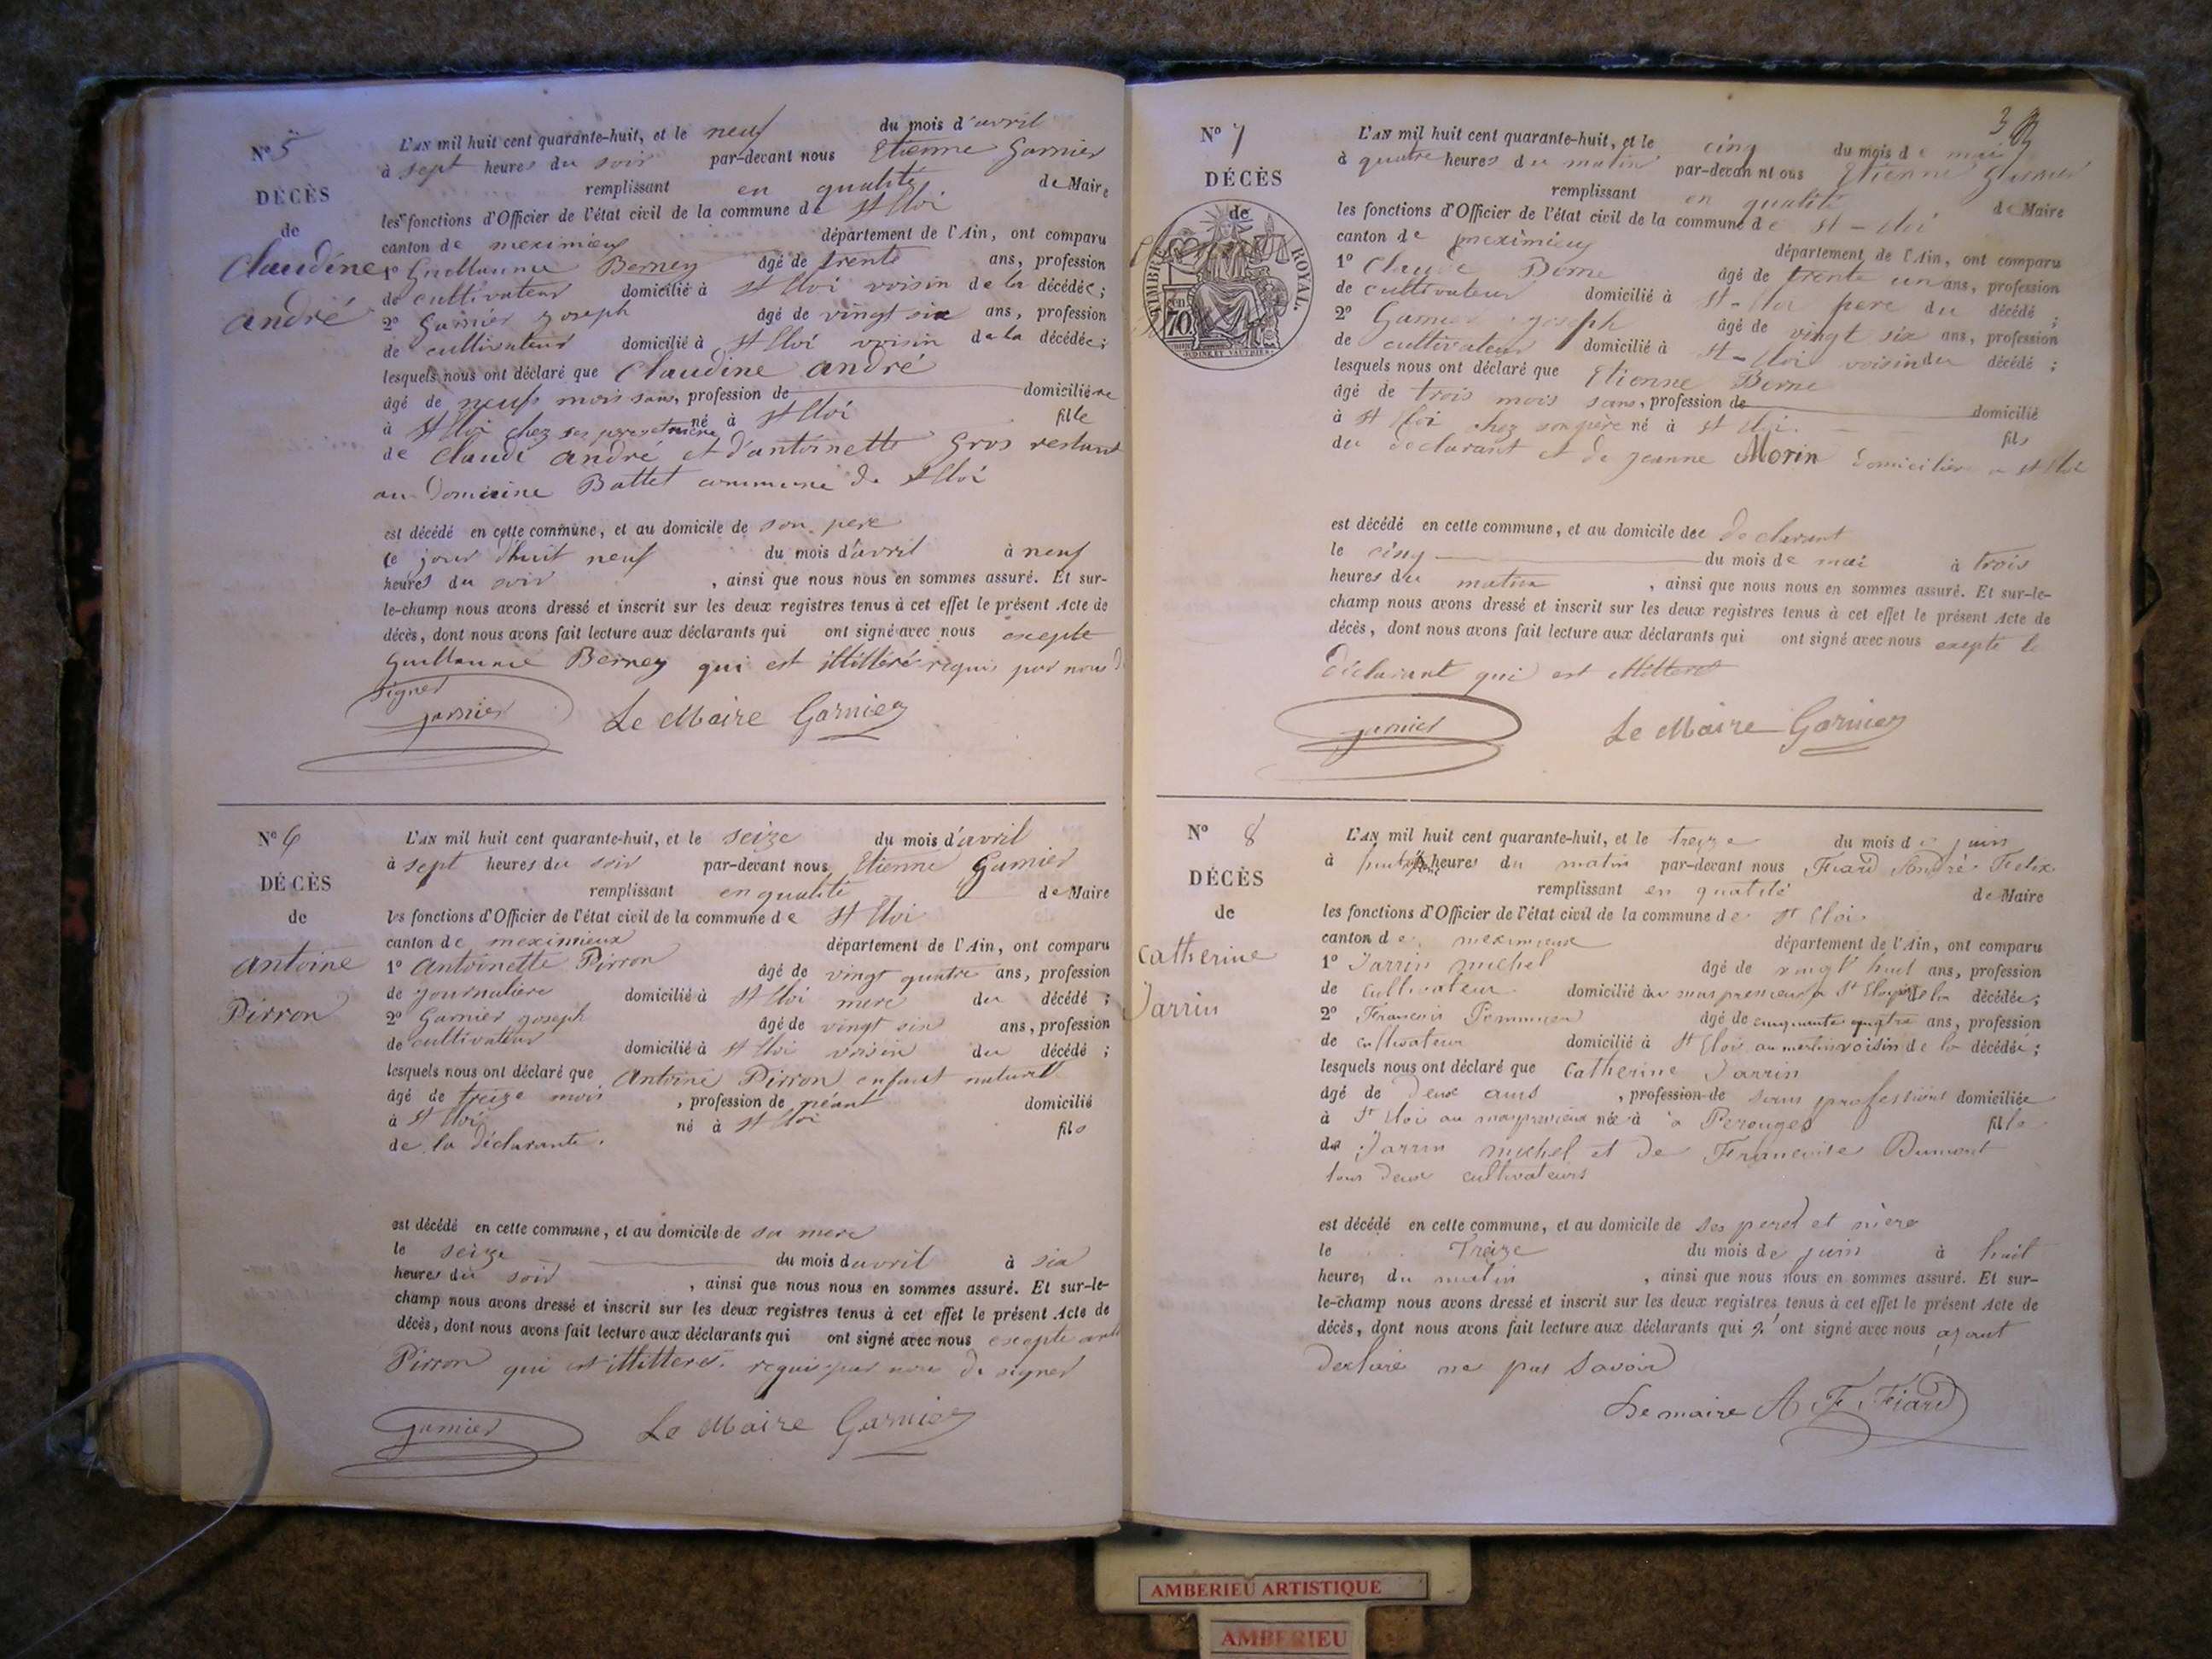 N° 5
DÉCÈS
de
Claudine
André
L'AN mil huit cent quarante-huit, et le neuf du mois d'avril
à sept heures du soir par-devant nous Etienne Garnier
remplissant en qualité de Maire
les fonctions d'Officier de l'état civil de la commune de St Eloi
canton de meximieux département de l'Ain, ont comparu
1° Guillaume Berney âgé de trente ans, profession
de cultivateur domicilié à St Eloi voisin de la décédée;
2° Garnier joseph âgé de vingt six ans, profession
de cultivateur domicilié à St Eloi voisin de la décédée;
lesquels nous ont déclaré que Claudine André
âgé de neuf mois sans, profession de domiciliée
à St Eloi chez ses pere et mere né à St Eloi fille
de Claude André et d'antoinette Gros restant
au Domaine Battet commune de St Eloi
est décédé en cette commune, et au domicile de son pere
ce jour d'huit neuf du mois d'avril à neuf
heures du soir, ainsi que nous nous en sommes assuré. Et sur-
le-champ nous avons dressé et inscrit sur les deux registres tenus à cet effet le présent Acte de
décès, dont nous avons fait lecture aux déclarants qui ont signé avec nous excepte
Guillaume Berney qui est illitéré requis par nous d
signer
garnier Le Maire Garnier
N° 6
DÉCÈS
de
antoine
Pirron
L'AN mil huit cent quarante-huit, et le seize du mois d'avril
à sept heures du soir par-devant nous Etienne Garnier
remplissant en qualité de Maire
les fonctions d'Officier de l'état civil de la commune de St Eloi
canton de meximieux département de l'Ain, ont comparu
1° Antoinette Pirron âgé de vingt quatre ans, profession
de journaliere domicilié à St Eloi mere du décédé;
2° Garnier joseph âgé de vingt six ans, profession
de cultivateur domicilié à St Eloi voisin du décédé;
lesquels nous ont déclaré que Antoine Pirron enfant naturel
âgé de treize mois, profession de néant domicilié
à St Eloi né à St Eloi fils
de la déclarante.
est décédé en cette commune, et au domicile de sa mere
le seize du mois d'avril à six
heures du soir, ainsi que nous nous en sommes assuré. Et sur-le-
champ nous avons dressé et inscrit sur les deux registres tenus à cet effet le présent Acte de
décès, dont nous avons fait lecture aux déclarants qui ont signé avec nous excepte
Pirron qui est illitteré requis par nous de signer
Garnier Le Maire Garnier
3
N° 7
DÉCÈS
de
TIMBRE ROYAL.
70
L'AN mil huit cent quarante-huit, et le cinq du mois de mai
à quatre heures du matin par-devant nous Etienne Garnier
remplissant en qualité de Maire
les fonctions d'Officier de l'état civil de la commune de St-Eloi
canton de meximieux département de l'Ain, ont comparu
1° Claude Berne âgé de trente un ans, profession
de cultivateur domicilié à St-Eloi pere du décédé;
2° Garnier joseph âgé de vingt six ans, profession
de cultivateur domicilié à St-Eloi voisin du décédé;
lesquels nous ont déclaré que Etienne Berne
âgé de trois mois sans, profession de domicilié
à St Eloi chez son père né à St Eloi fils
du declarant et de jeanne Morin domiciliée a St Eloi
est décédé en cette commune, et au domicile du declarant
le cinq du mois de mai à trois
heures du matin, ainsi que nous nous en sommes assuré. Et sur-le-
champ nous avons dressé et inscrit sur les deux registres tenus à cet effet le présent Acte de
décès, dont nous avons fait lecture aux déclarants qui ont signé avec nous excepte le
déclarant qui est illitteré
garnier Le Maire Garnier
N° 8
DÉCÈS
de
Catherine
Jarrin
L'AN mil huit cent quarante-huit, et le treize du mois de juin
à heures du matin par-devant nous Fiard André Felix
remplissant en qualité de Maire
les fonctions d'Officier de l'état civil de la commune de St Eloi
canton de meximieux département de l'Ain, ont comparu
1° Jarrin michel âgé de vingt huit ans, profession
de cultivateur domicilié à St Eloi de la décédée;
2° Francois âgé de cinquante quatre ans, profession
de cultivateur domicilié à St Eloi voisin de la décédée;
lesquels nous ont déclaré que Catherine Jarrin
âgé de deux ans, profession de sans profession domiciliée
à St Eloi au née à Perouges fille
de Jarrin michel et de Francoise Dumont
tous deux cultivateurs
est décédé en cette commune, et au domicile de ses peres et mere
le Treize du mois de juin à huit
heures du matin, ainsi que nous nous en sommes assuré. Et sur-
le-champ nous avons dressé et inscrit sur les deux registres tenus à cet effet le présent Acte de
décès, dont nous avons fait lecture aux déclarants qui n'ont signé avec nous ayant
declaré ne pas Savoir
Le maire A F Fiard
AMBERIEU ARTISTIQUE
AMBERIEU